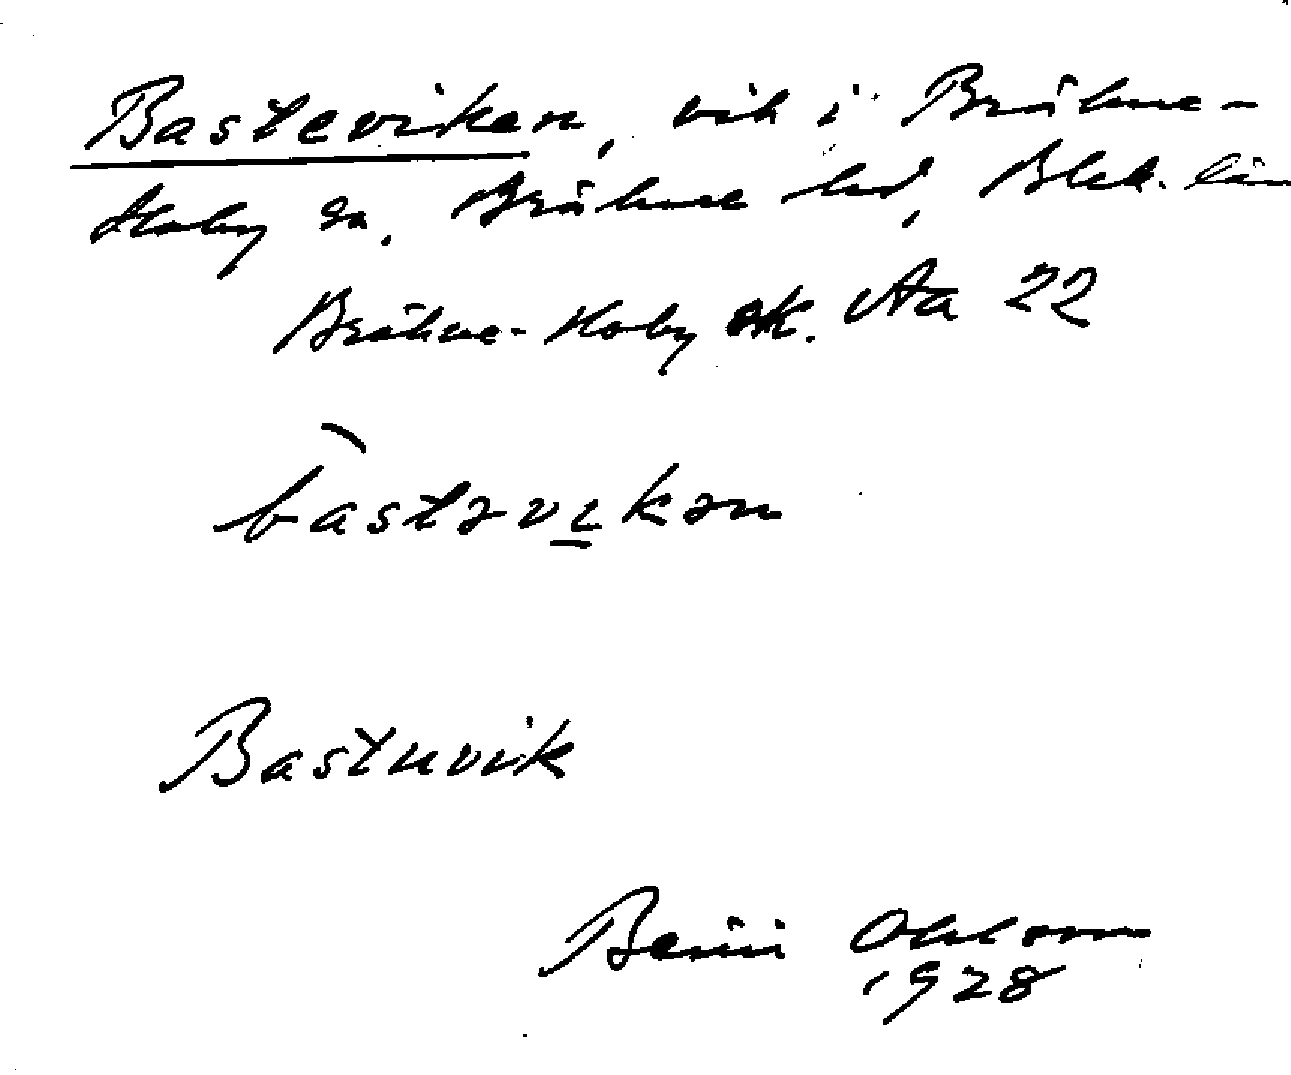 Basteviken, vik i Bräkne-
Hoby sn, Bräkne hd, Blek. län
Bräkne-Hoby sk. Aa 22
bastəvikən
Bastuvik
Ohlsson
1928